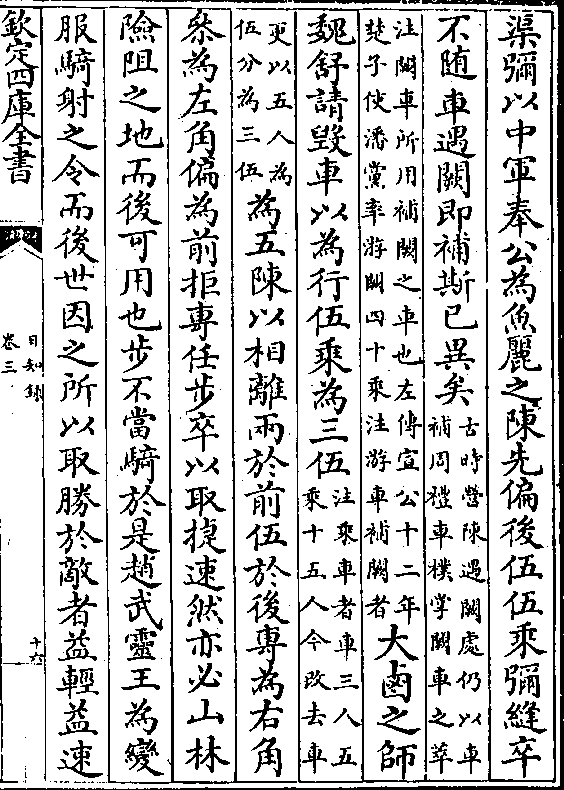 渠彌以中軍奉公為魚麗之陳先偏後伍伍乘彌縫卒
不随車遇闕即補斯已異矣
古時營陳遇闕處仍以車
補周禮車樸掌闕車之萃
注闕車所用補闕之車也左傳宣公十二年
楚子使潘黨率游闕四十乘注游車補闕者
大鹵之師
魏舒請毀車以為行伍乘為三伍
注乘車者車三人五
乘十五人今改去車
更以五人為
伍分為三伍
為五陳以相離兩於前伍於後專為右角
叅為左角偏為前拒專任步卒以取捷速然亦必山林
險阻之地而後可用也步不當騎於是趙武靈王為變
服騎射之令而後世因之所以取勝於敵者益輕益速
欽定四庫全書
日知録
卷三
十六